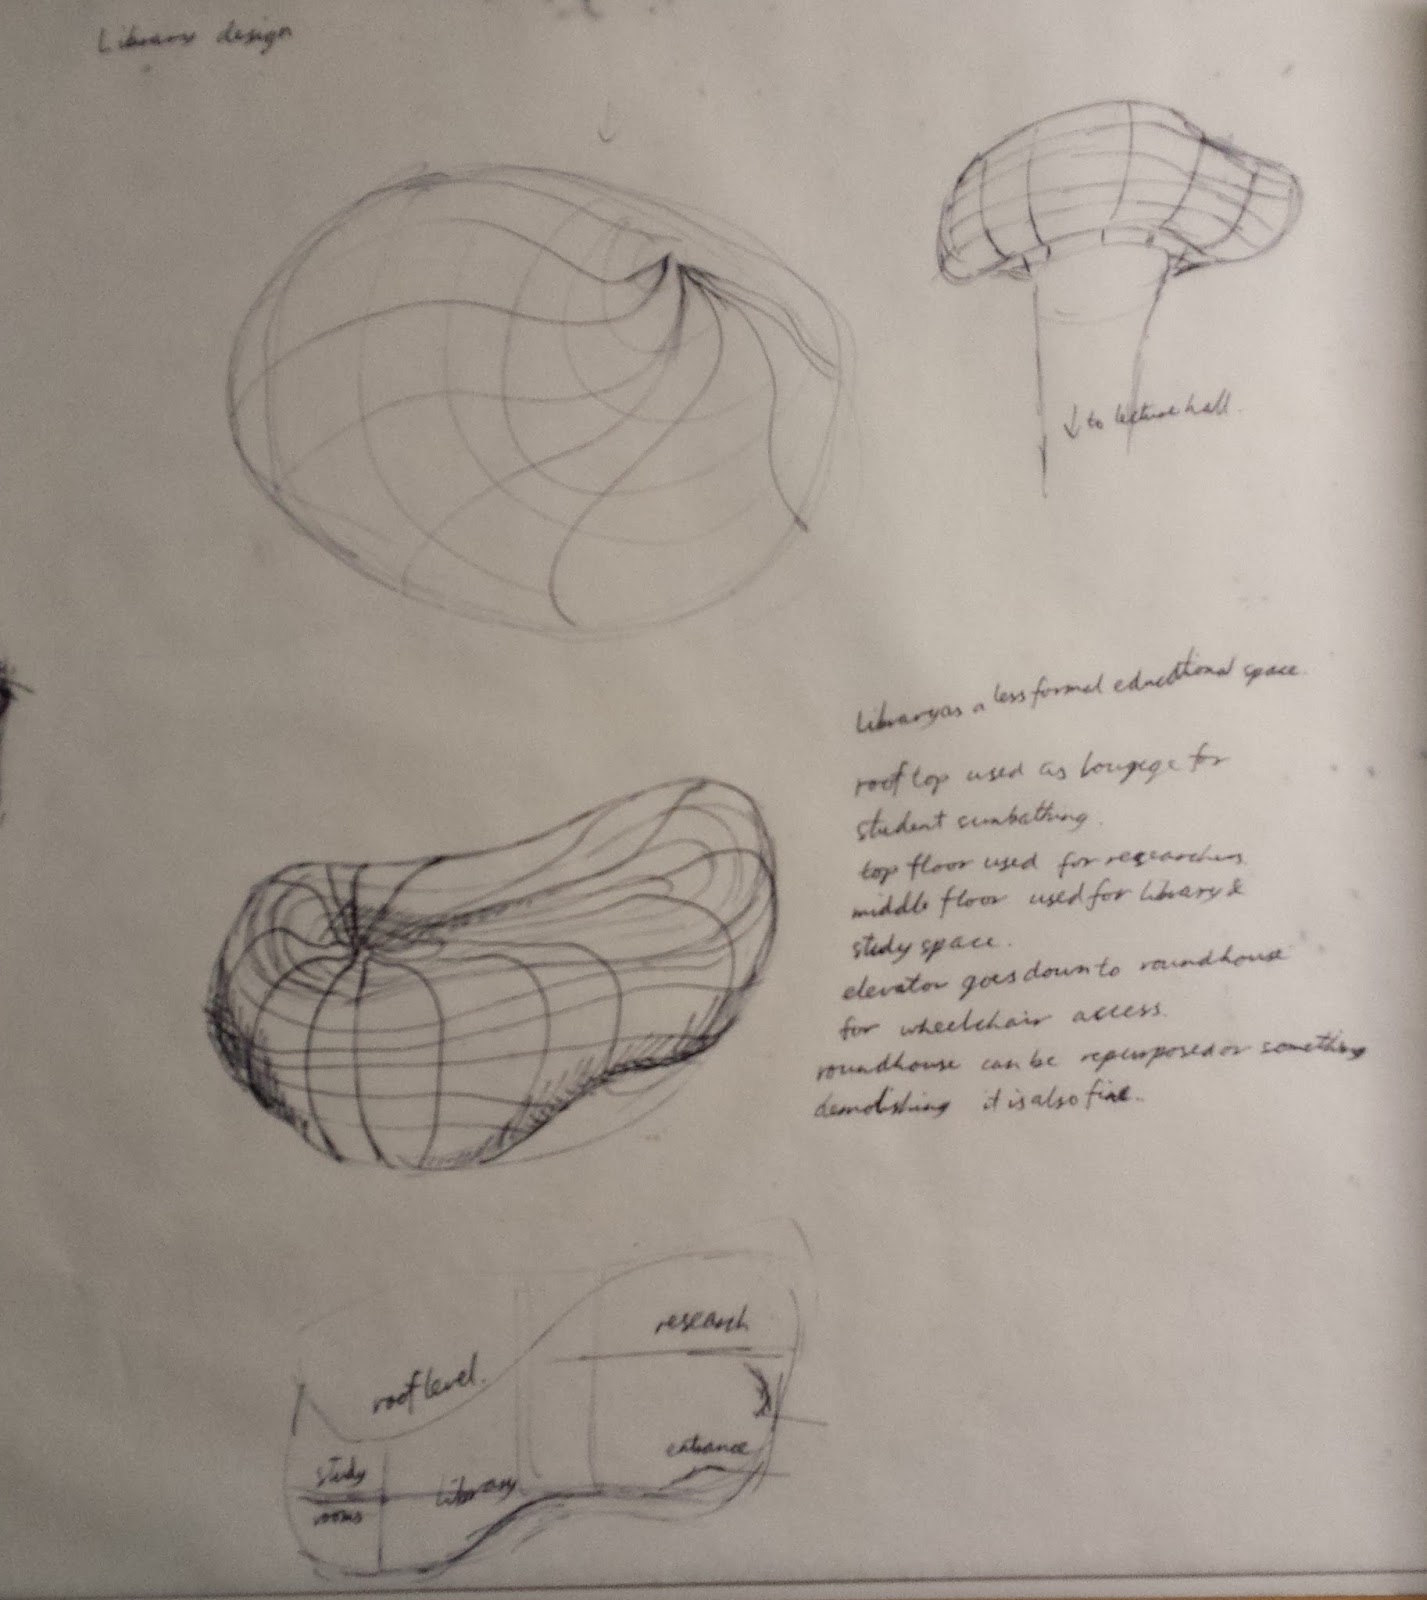 Library design
↓ to lecture hall.
library as a less formal educational space.
rooftop used as loungege for
student sunbathing.
top floor used for researchers
middle floor used for library &
study space.
elevator goes down to roundhouse
for wheelchair access.
roundhouse can be repurposed or something
demolishing it is also fine..
research
roof level.
entrance
study
library
rooms